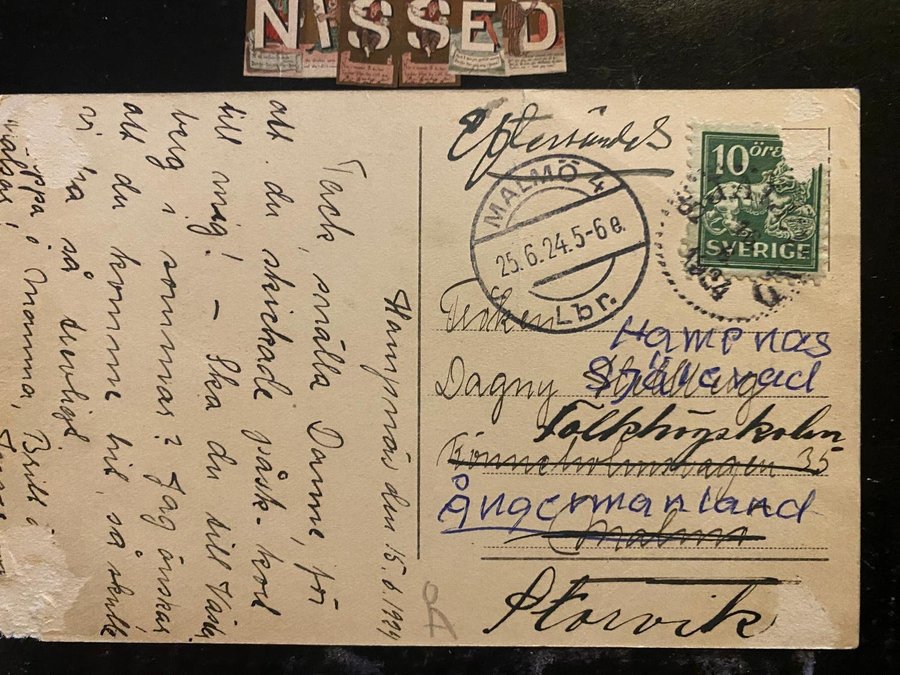 NISSED
Eftersändes
MALMÖ 4
25.6.24.5-6e.
Lbr.
10 öre
SVERIGE
Fröken
Hampnäs
Dagny
Själevad
Folkhögskolan
Rönneholmsvägen 35
Ångermanland
Malmö
Storvik
Hampnäs den 15.6.1924
Tack, snälla Danne, för
att du skickade påsk-kort
till mig! – Ska du till
berg i sommar? Jag önskar
att du komme hit, så skulle
vi ha så trevligt
pappa, mamma, Britt o